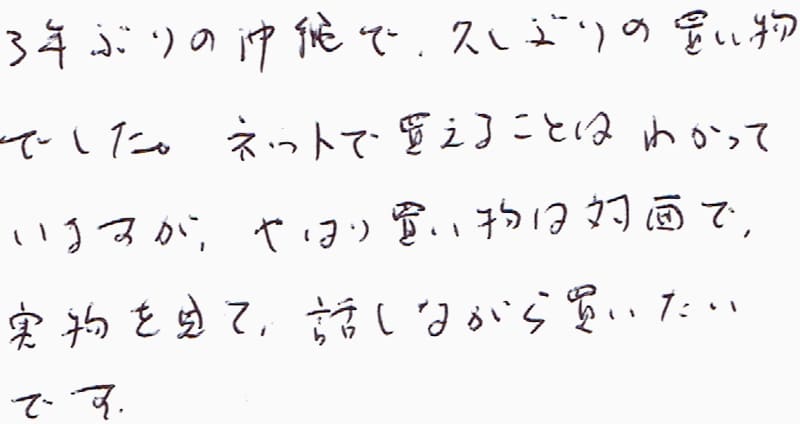 3年ぶりの沖縄で、久しぶりの買い物
でした。ネットで買えることはわかって
いますが、やはり買い物は対面で、
実物を見て、話しながら買いたい
です。